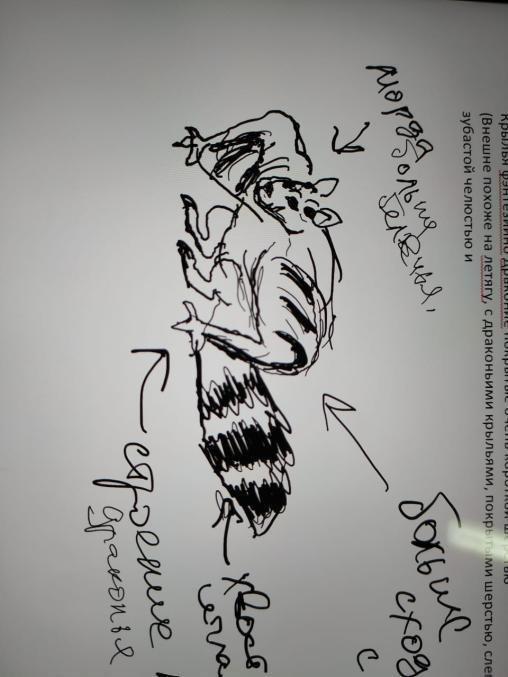 крылья фэнтезийно драконие покрытые очень короткой шерстью
(Внешне похоже на летягу, с драконьими крыльями, покрытыми шерстью,
зубастой челюстью и
морда
больше
больше
сход
с
хвост
строение
драконья